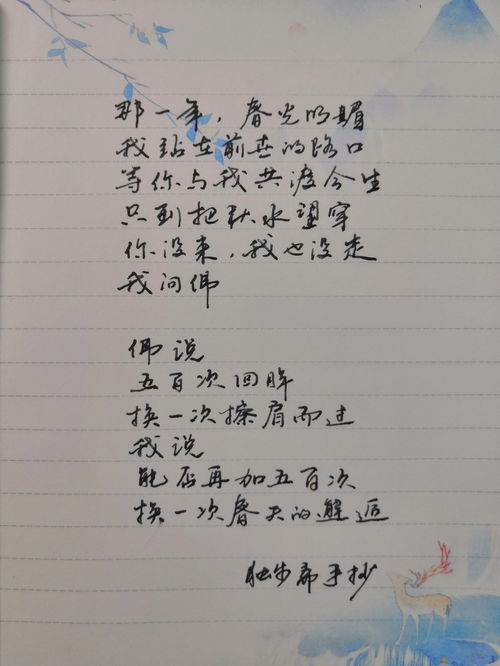 那一年，春光明媚
我站在前世的路口
等你与我共渡今生
只到把秋水望穿
你没来，我也没走
我问佛
佛说
五百次回眸
换一次擦肩而过
我说
能否再加五百次
换一次春天的邂逅
手抄